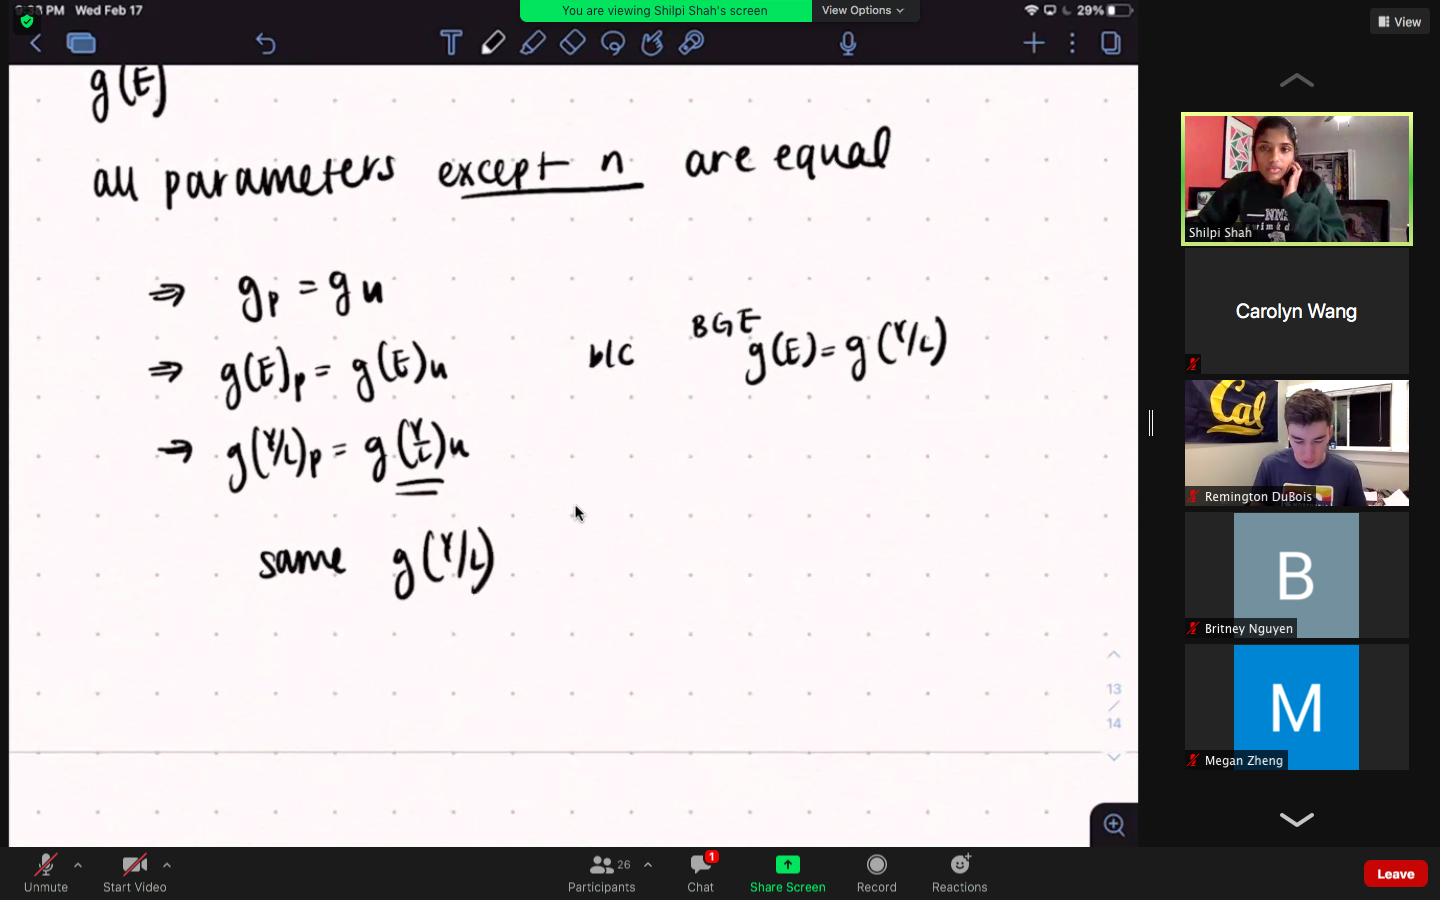 9:33 PM Wed Feb 17
You are viewing Shilpi Shah's screen
View Options
29%
View
g(E)
all parameters except n are equal
⇒ gp = gu
⇒ g(E)p = g(E)u
b/c
BGE
g(E) = g(Y/L)
→ g(Y/L)p = g(Y/L)u
same g(Y/L)
13
/
14
Shilpi Shah
Carolyn Wang
Cal
Remington DuBois
B
Britney Nguyen
M
Megan Zheng
Unmute
Start Video
26
Participants
1
Chat
Share Screen
Record
Reactions
Leave